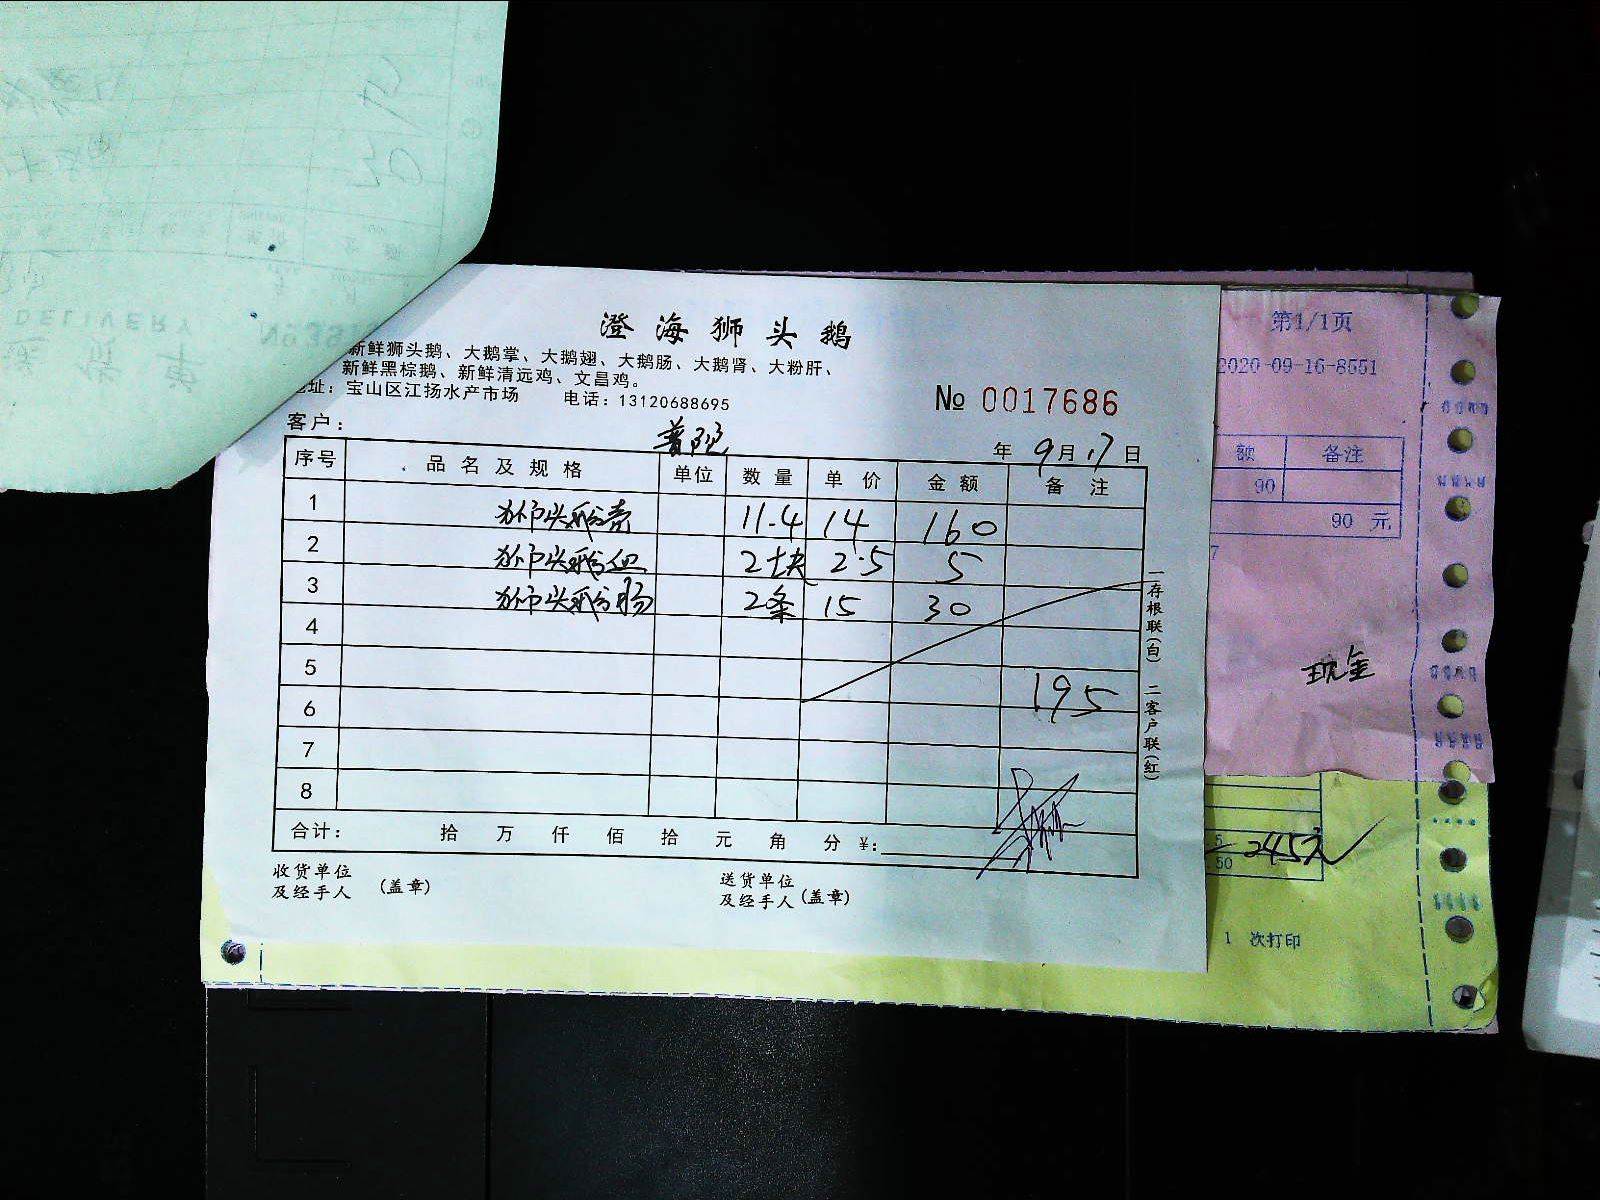 澄海狮头鹅
新鲜狮头鹅、大鹅掌、大鹅翅、大鹅肠、大鹅肾、大粉肝、
新鲜黑棕鹅、新鲜清远鸡、文昌鸡。
址：宝山区江扬水产市场 电话：13120688695
№ 0017686
客户：
年 9月17日
序号 品名及规格 单位 数量 单价 金额 备注
1 狮头鹅壳 11.4 14 160
2 狮头鹅血 2块 2.5 5
3 狮头鹅肠 2条 15 30
4
5
195
6
7
8
合计： 拾 万 仟 佰 拾 元 角 分 ¥:
收货单位
及经手人 (盖章)
送货单位
及经手人 (盖章)
一存根联(白) 二客户联(红)
第1/1页
2020-09-16-8551
额 备注
90
90 元
7
现金
5
50
245元
1 次打印
DELIVERY